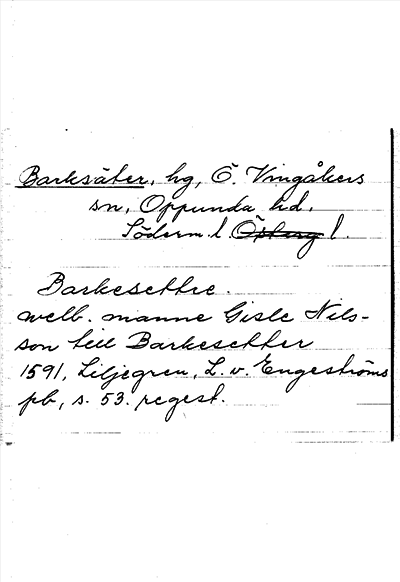 Barksäter, hg, Ö. Vingåkers
sn, Oppunda hd.
Söderm. l Österg l.
Barkesettre.
welb. manne Gisle Nils-
son till Barkesetter
1591, Liljegren, L. v. Engeströms
pb, s. 53. regest.